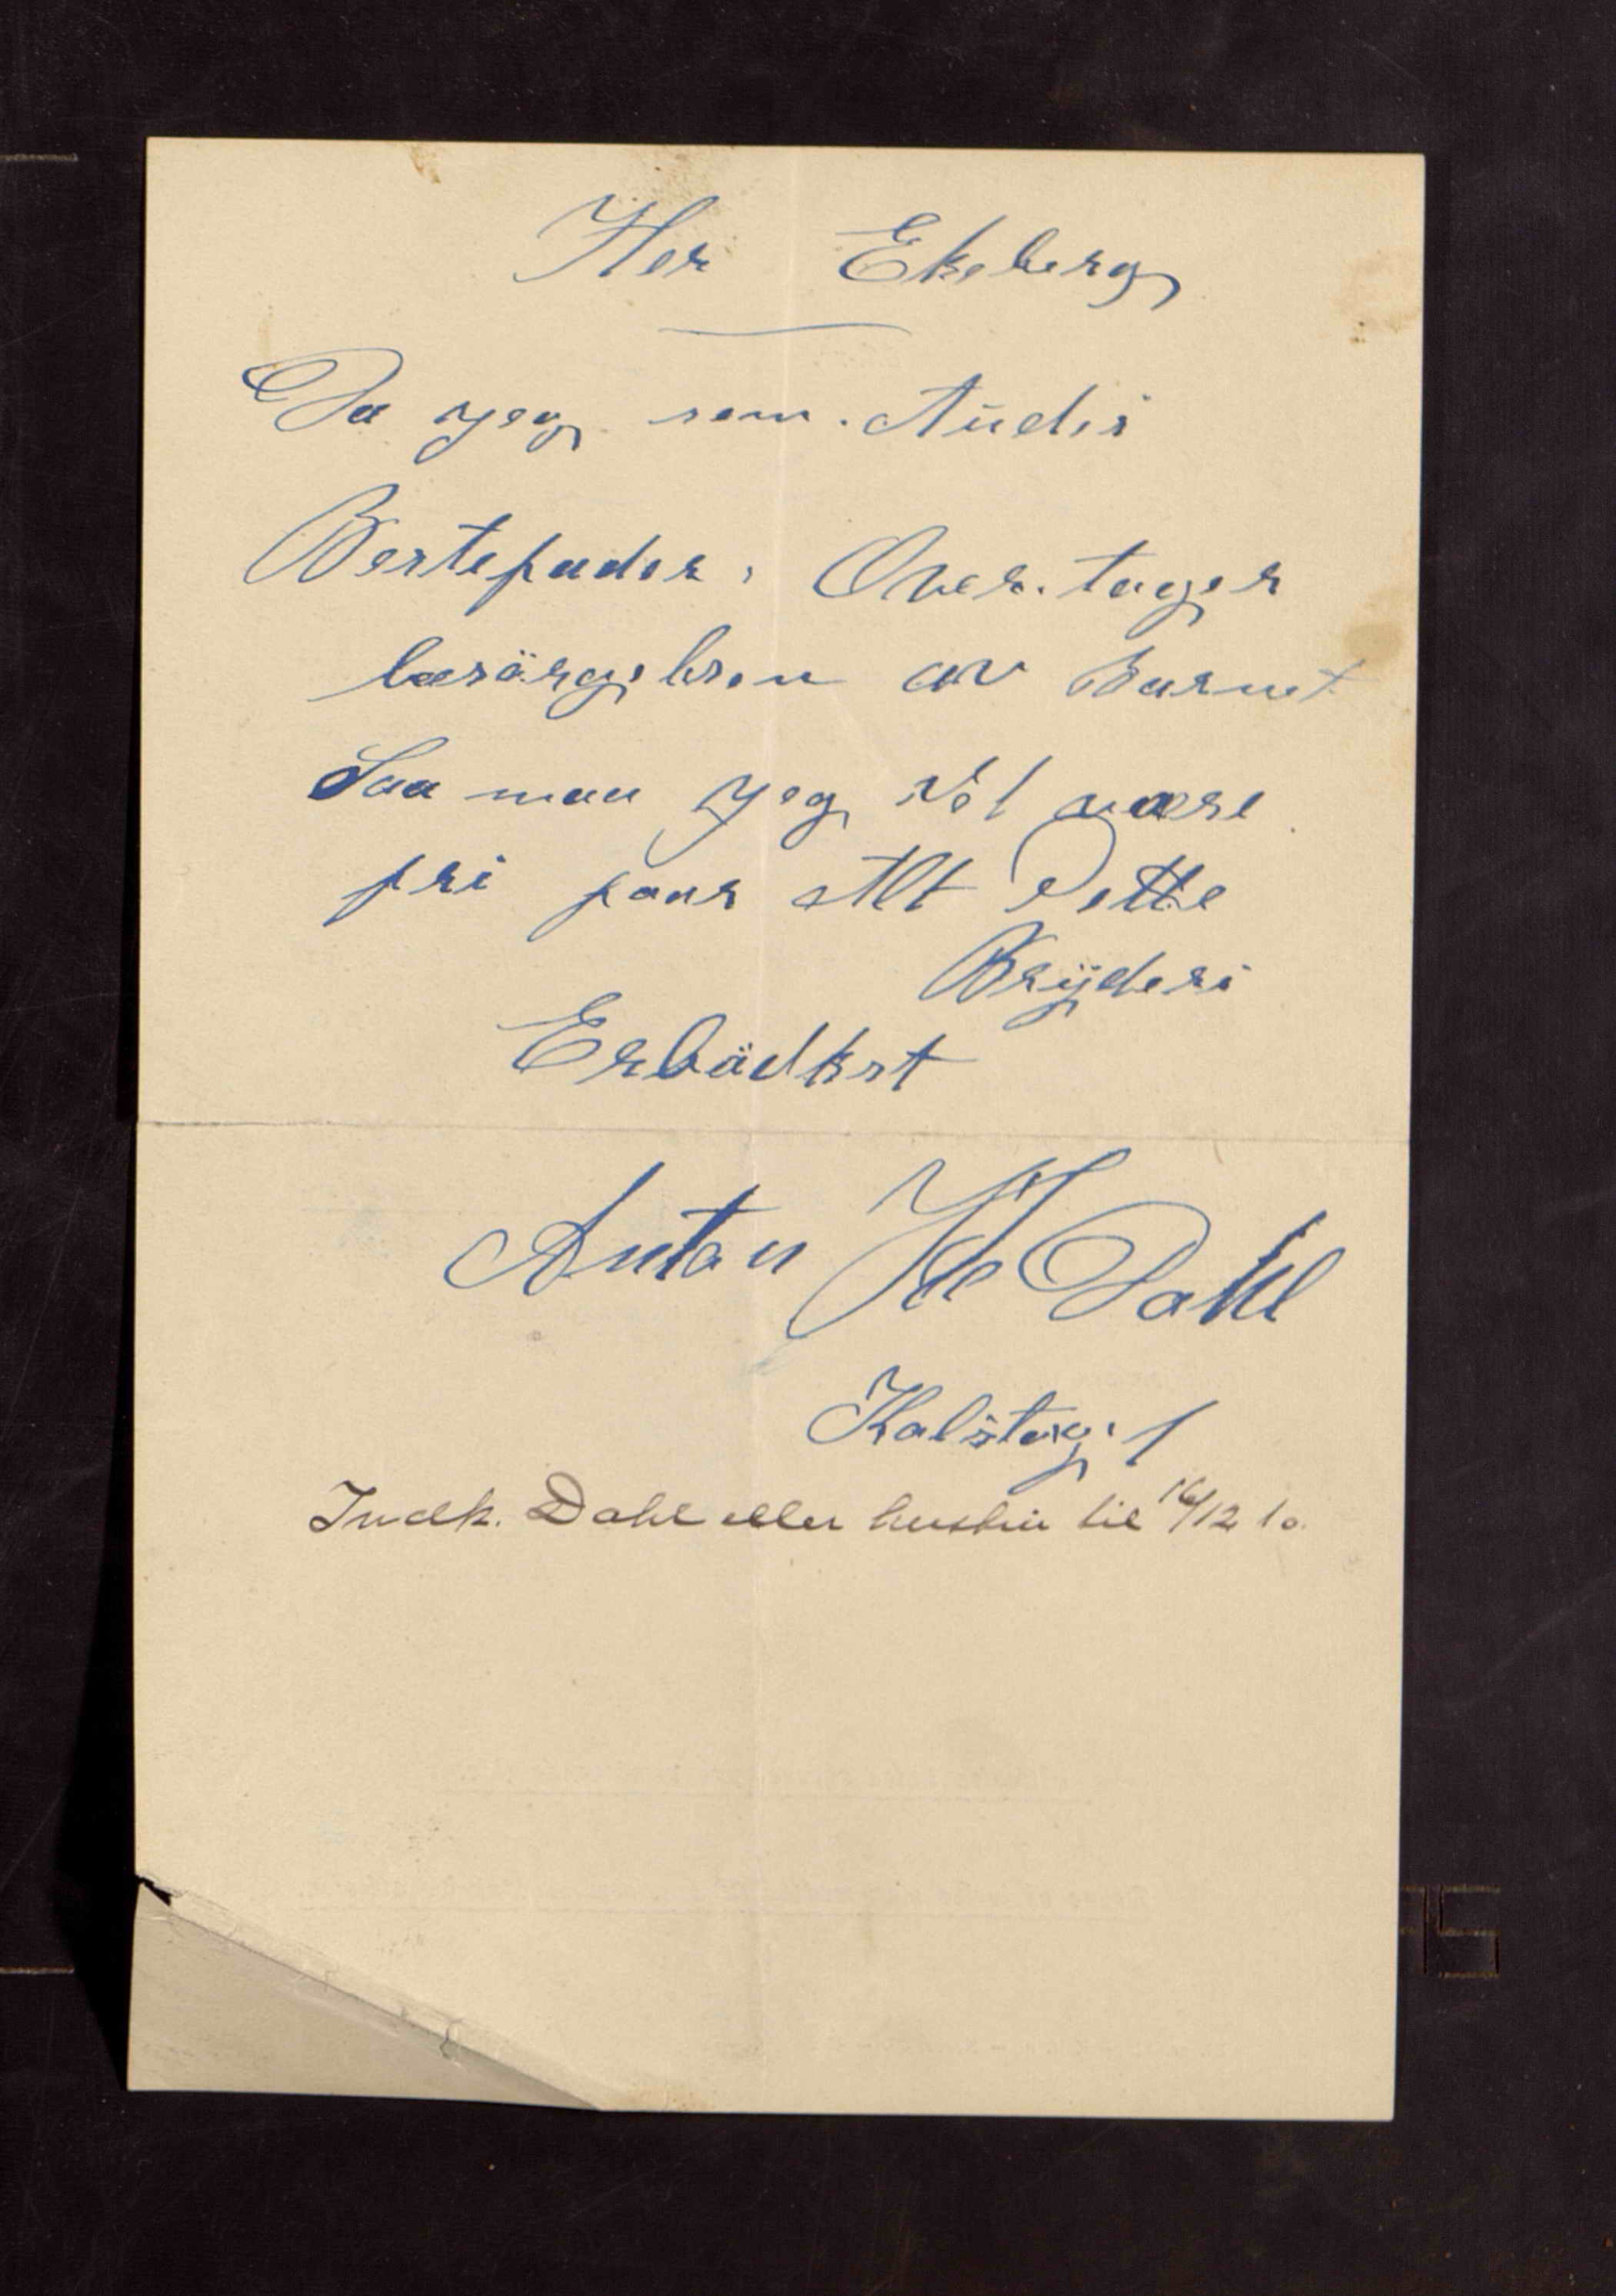 Her Ekeberg
Da jeg som. Audis
Bestefader, Over. tager
besörgelsen av Barnet
Saa maa jeg vel være
fri faar Alt Dette
Bryderi
Erbödkst
Anton H Dahl
Kalstag. 1
Indk. Dahl eller hustru til 16/12 10.